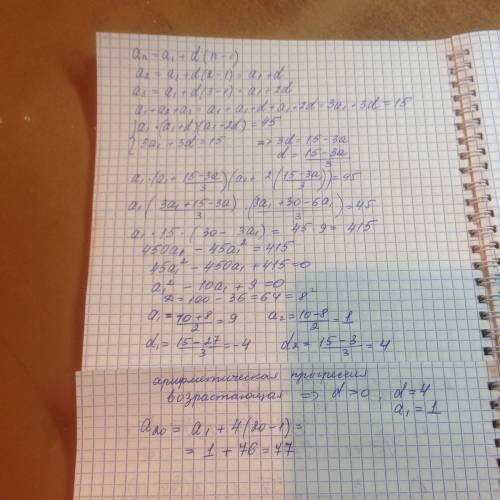 aₙ = a₁ + d(n-1)
a₂ = a₁ + d(2-1) = a₁+d
a₃ = a₁ + d(3-1) = a₁+2d
a₁+a₂+a₃ = a₁ + a₁+d + a₁+2d = 3a₁+3d = 15
{ a₁·(a₁+d)(a₁+2d) = 45
3a₁ + 3d = 15 => 3d = 15-3a
d = (15-3a)/3
a₁·(a₁ + (15-3a)/3)(a₁ + 2((15-3a)/3)) = 45
a₁((3a₁+15-3a)/3)·((3a₁+30-6a₁)/3) = 45
a₁·15·(30-3a₁) = 45·9 = 415
450a₁ - 45a₁² = 415
45a₁² - 450a₁ + 415 = 0
a₁² - 10a₁ + 9 = 0
D = 100 - 36 = 64 = 8²
a₁ = (10+8)/2 = 9 a₂ = (10-8)/2 = 1
d₁ = (15-27)/3 = -4 d₂ = (15-3)/3 = 4
арифметическая прогрессия
возрастающая => d>0, d=4
a₁ = 1
a₂₀ = a₁ + 4(20-1) =
= 1 + 76 = 77